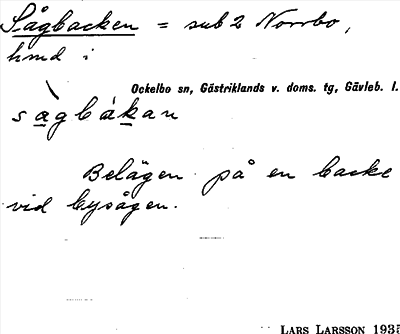 Sågbacken = sub 2 Norrbo,
hmd i
Ockelbo sn, Gästriklands v. doms. tg, Gävleb. l.
sàgbákan
Belägen på en backe
vid bysågen.
LARS LARSSON 1935